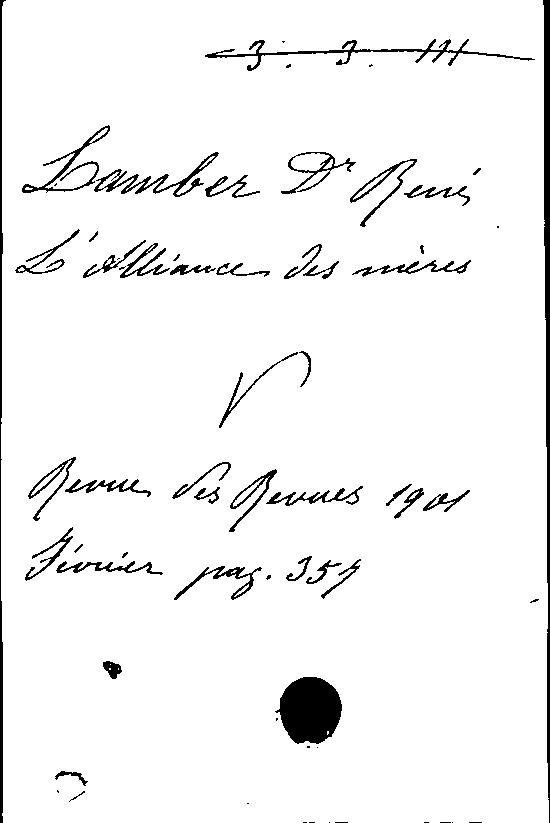 3. 3. III
Lamber Dr René
L'Alliance des mères
V
Revue des Revues 1901
Février pag. 357